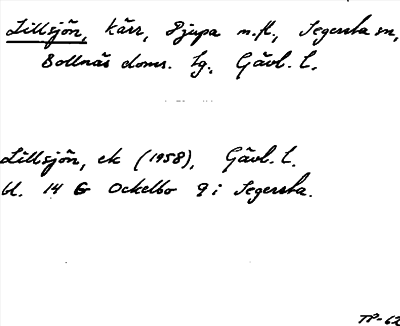 Lillsjön, kärr, Djupa m.fl., Segersta sn,
Bollnäs doms. lg., Gävl. l.
Lillsjön, ek (1958), Gävl. l.
bl. 14 G Ockelbo 9 i Segersta.
TP-62